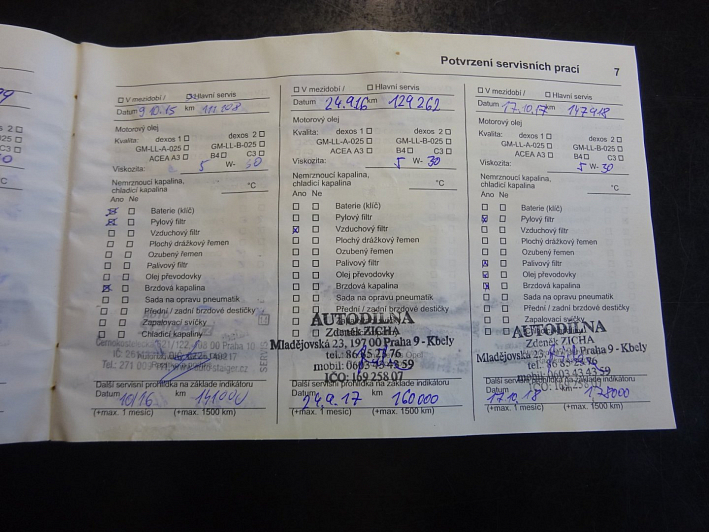 Potvrzení servisních prací 7
V mezidobí / Hlavní servis
Datum 9.10.15 km
Motorový olej
Kvalita: dexos 1 dexos 2
GM-LL-A-025 GM-LL-B-025
ACEA A3 B4 C3
Viskozita: 5 W- 30
Nemrznoucí kapalina,
chladicí kapalina °C
Ano Ne
Baterie (klíč)
Pylový filtr
Vzduchový filtr
Plochý drážkový řemen
Ozubený řemen
Palivový filtr
Olej převodovky
Brzdová kapalina
Sada na opravu pneumatik
Přední / zadní brzdové destičky
Zapalovací svíčky
Chladicí kapaliny
Další servisní prohlídka na základě indikátoru
Datum 10/16 km 141000
(+max. 1 měsíc) (+max. 1500 km)
V mezidobí / Hlavní servis
Datum 24.9.16 km 129262
Motorový olej
Kvalita: dexos 1 dexos 2
GM-LL-A-025 GM-LL-B-025
ACEA A3 B4 C3
Viskozita: 5 W- 30
Nemrznoucí kapalina,
chladicí kapalina °C
Ano Ne
Baterie (klíč)
Pylový filtr
Vzduchový filtr
Plochý drážkový řemen
Ozubený řemen
Palivový filtr
Olej převodovky
Brzdová kapalina
Sada na opravu pneumatik
Přední / zadní brzdové destičky
AUTODÍLNA
Zdeněk ZICHA
Mladějovská 23, 197 00 Praha 9 - Kbely
tel.: 86 85 23 76
mobil: 0603 43 43 59
IČO: 169 258 07
Další servisní prohlídka na základě indikátoru
Datum 24.9.17 km 160000
(+max. 1 měsíc) (+max. 1500 km)
V mezidobí / Hlavní servis
Datum 17.10.17 km 147918
Motorový olej
Kvalita: dexos 1 dexos 2
GM-LL-A-025 GM-LL-B-025
ACEA A3 B4 C3
Viskozita: 5 W- 30
Nemrznoucí kapalina,
chladicí kapalina °C
Ano Ne
Baterie (klíč)
Pylový filtr
Vzduchový filtr
Plochý drážkový řemen
Ozubený řemen
Palivový filtr
Olej převodovky
Brzdová kapalina
Sada na opravu pneumatik
Přední / zadní brzdové destičky
AUTODÍLNA
Zdeněk ZICHA
Mladějovská 23, Praha 9 - Kbely
mobil: 0603 43 43 59
Další servisní prohlídka na základě indikátoru
Datum 17.10.18 km 178000
(+max. 1 měsíc) (+max. 1500 km)